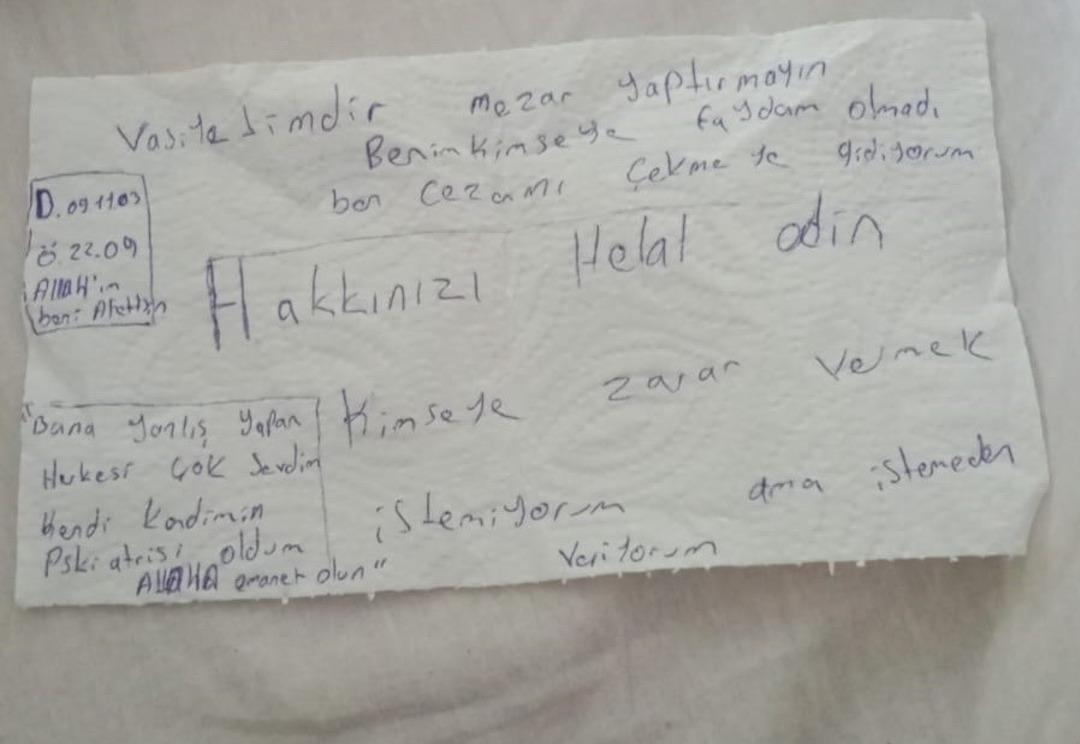 Vasiyetimdir mezar yaptırmayın
Benim kimseye faydam olmadı
ben cezamı Çekmeye gidiyorum
D. 09.11.03
Ö 22.09
ALLAH'ın
beni Afettsin
Hakkınızı Helal edin
"Bana yanlış yapan
Herkesi Çok Sevdim
Kendi Kendimin
Pskiatrisi oldum
ALLAHA emanet olun"
Kimseye zarar Vermek
istemiyorum ama istemeden
Veriyorum